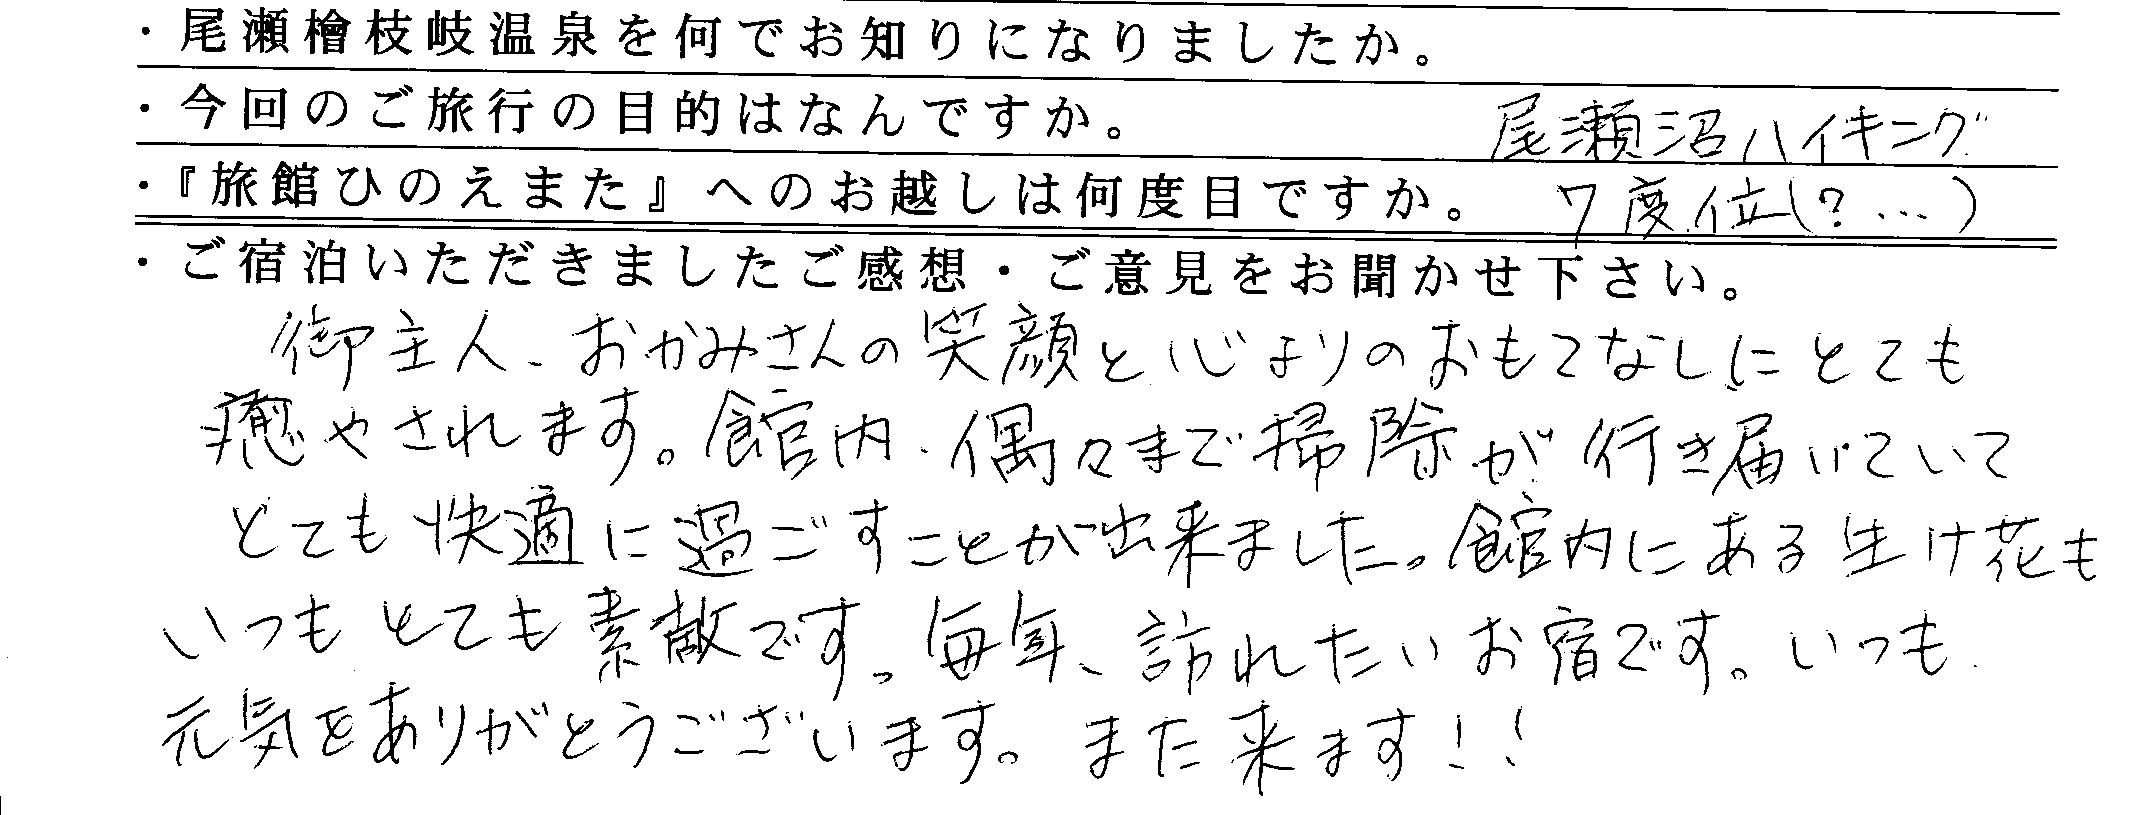 ・尾瀬檜枝岐温泉を何でお知りになりましたか。
・今回のご旅行の目的はなんですか。 尾瀬沼ハイキング
・『旅館ひのえまた』へのお越しは何度目ですか。 7度位(?…)
・ご宿泊いただきましたご感想・ご意見をお聞かせ下さい。
御主人、おかみさんの笑顔と心よりのおもてなしにとても
癒やされます。館内・偶々まで掃除が行き届いていて
とても快適に過ごすことが出来ました。館内にある生け花も
いつもとても素敵です。毎年、訪れたいお宿です。いつも
元気をありがとうございます。また来ます!!